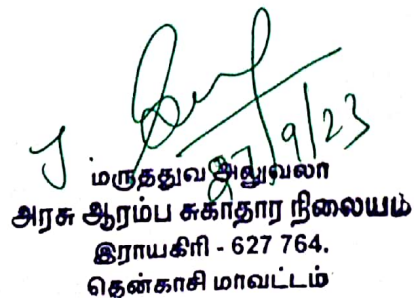 27/9/23
மருத்துவ அலுவலர்
அரசு ஆரம்ப சுகாதார நிலையம்
இராயகிரி - 627 764.
தென்காசி மாவட்டம்